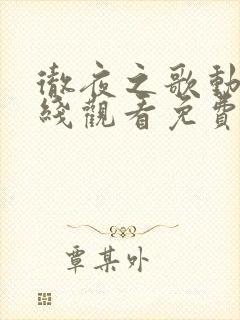 徹夜之歌動
綫觀看免費
覃某外